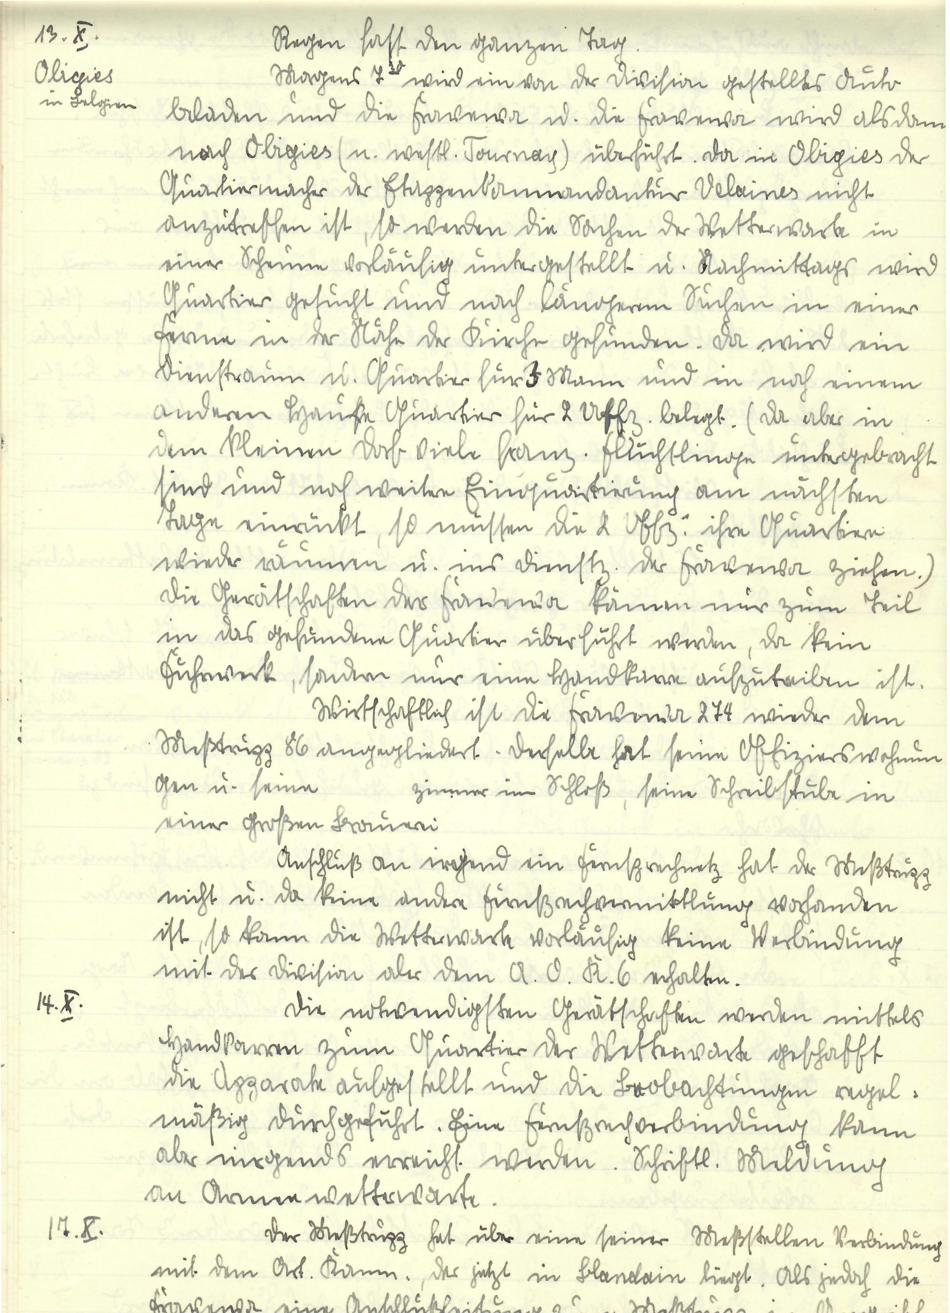 13. X. Regen fast den ganzen Tag.
Obigies Morgens 7³⁰ wird ein von der Division gestelltes Auto
in Belgien beladen und die Frawewa u. die Frawewa wird alsdann
nach Obigies (n. westl. Tournay) überführt. Da in Obigies der
Quartiermacher der Etappenkommandantur Velaines nicht
anzutreffen ist, so werden die Sachen der Wetterwarte in
einer Scheune vorläufig untergestellt u. Nachmittags wird
Quartier gesucht und nach längerem Suchen in einer
Ferme in der Nähe der Kirche gefunden. Da wird ein
Dienstraum u. Quartier für 3 Mann und in noch einem
anderen Hause Quartier für 2 Uffz. belegt. (Da aber in
dem kleinen Dorf viele franz. Flüchtlinge untergebracht
sind und noch weitere Einquartierung am nächsten
Tage einrückt, so müssen die 2 Uffz. ihre Quartiere
wieder räumen u. ins Dienstz. der Frawewa ziehen.)
Die Gerätschaften der Frawewa kämen nur zum Teil
in das gefundene Quartier überführt werden, da kein
Fuhrwerk, sondern nur eine Handkarre aufzutreiben ist.
Wirtschaftlich ist die Frawewa 274 wieder dem
Meßtrupp 86 angegliedert. Derselbe hat seine Offizierswohnun
gen u. seine zimmer im Schloß, seine Schreibstube in
einer großen Brauerei
Anschluß an irgend ein Fernsprechnetz hat der Meßtrupp
nicht u. da keine andere Fernsprechvermittlung vorhanden
ist, so kann die Wetterwarte vorläufig keine Verbindung
mit der Division oder dem A. O. K. 6 erhalten.
14. X. Die notwendigsten Gerätschaften werden mittels
Handkarren zum Quartier der Wetterwarte geschafft
die Apparate aufgestellt und die Beobachtungen regel-
mäßig durchgeführt. Eine Fernsprechverbindung kann
aber nirgends erreicht werden. Schriftl. Meldung
an Armeewetterwarte.
17. X. Der Meßtrupp hat über eine seiner Meßstellen Verbindung
mit dem Art. Komm., der jetzt in Blandain liegt. Als jedoch die
Frawewa eine